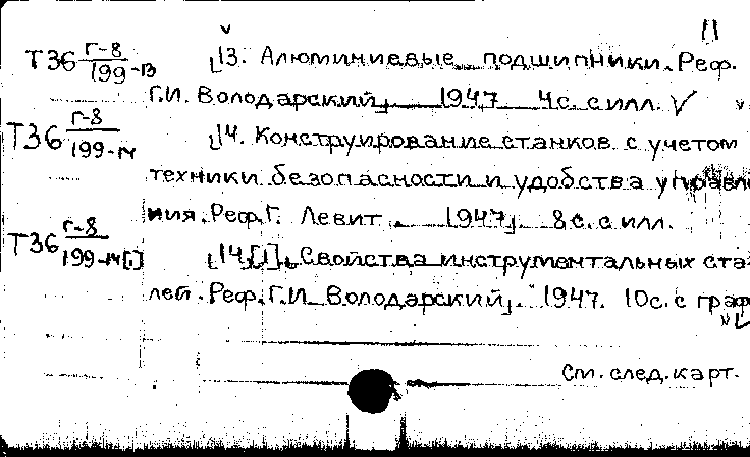 11
Т36 Г-8/199-13 13. Алюминиевые подшипники. Реф.
Г.И. Володарский, 1947 4с. с илл.
Т36 Г-8/199-14 14. Конструирование станков с учетом
техники безопасности и удобства управле
ния. Реф. Г. Левит. 1947, 8с. с илл.
Т36 Г-8/199-14[1] 14[1]. Свойства инструментальных ста-
лей. Реф. Г.И. Володарский, 1947. 10с. с граф
см. след. карт.